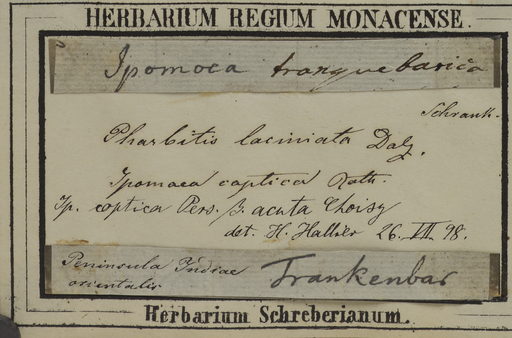 HERBARIUM REGIUM MONACENSE.
Ipomoea tranquebarica
Schrank.
Pharbitis laciniata Dalz.
Ipomaea coptica Roth.
Ip. coptica Pers. β. acuta Choisy
det. H. Hallier 26. VII. 98.
Peninsula Indiae orientalis
Trankenbar
Herbarium Schreberianum.